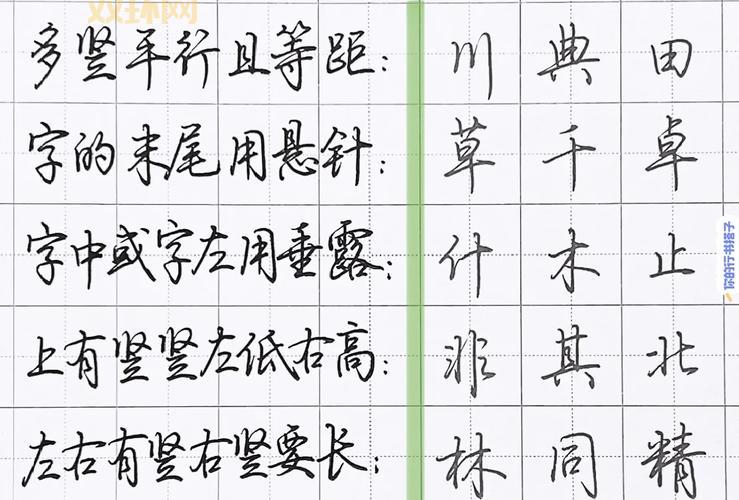 双环网
多竖平行且等距：川 典 田
字的末尾用悬针：草 千 卓
字中或字左用垂露：什 木 止
上有竖竖左低右高：非 其 北
左右有竖右竖要长：林 同 精
你的行书搭子